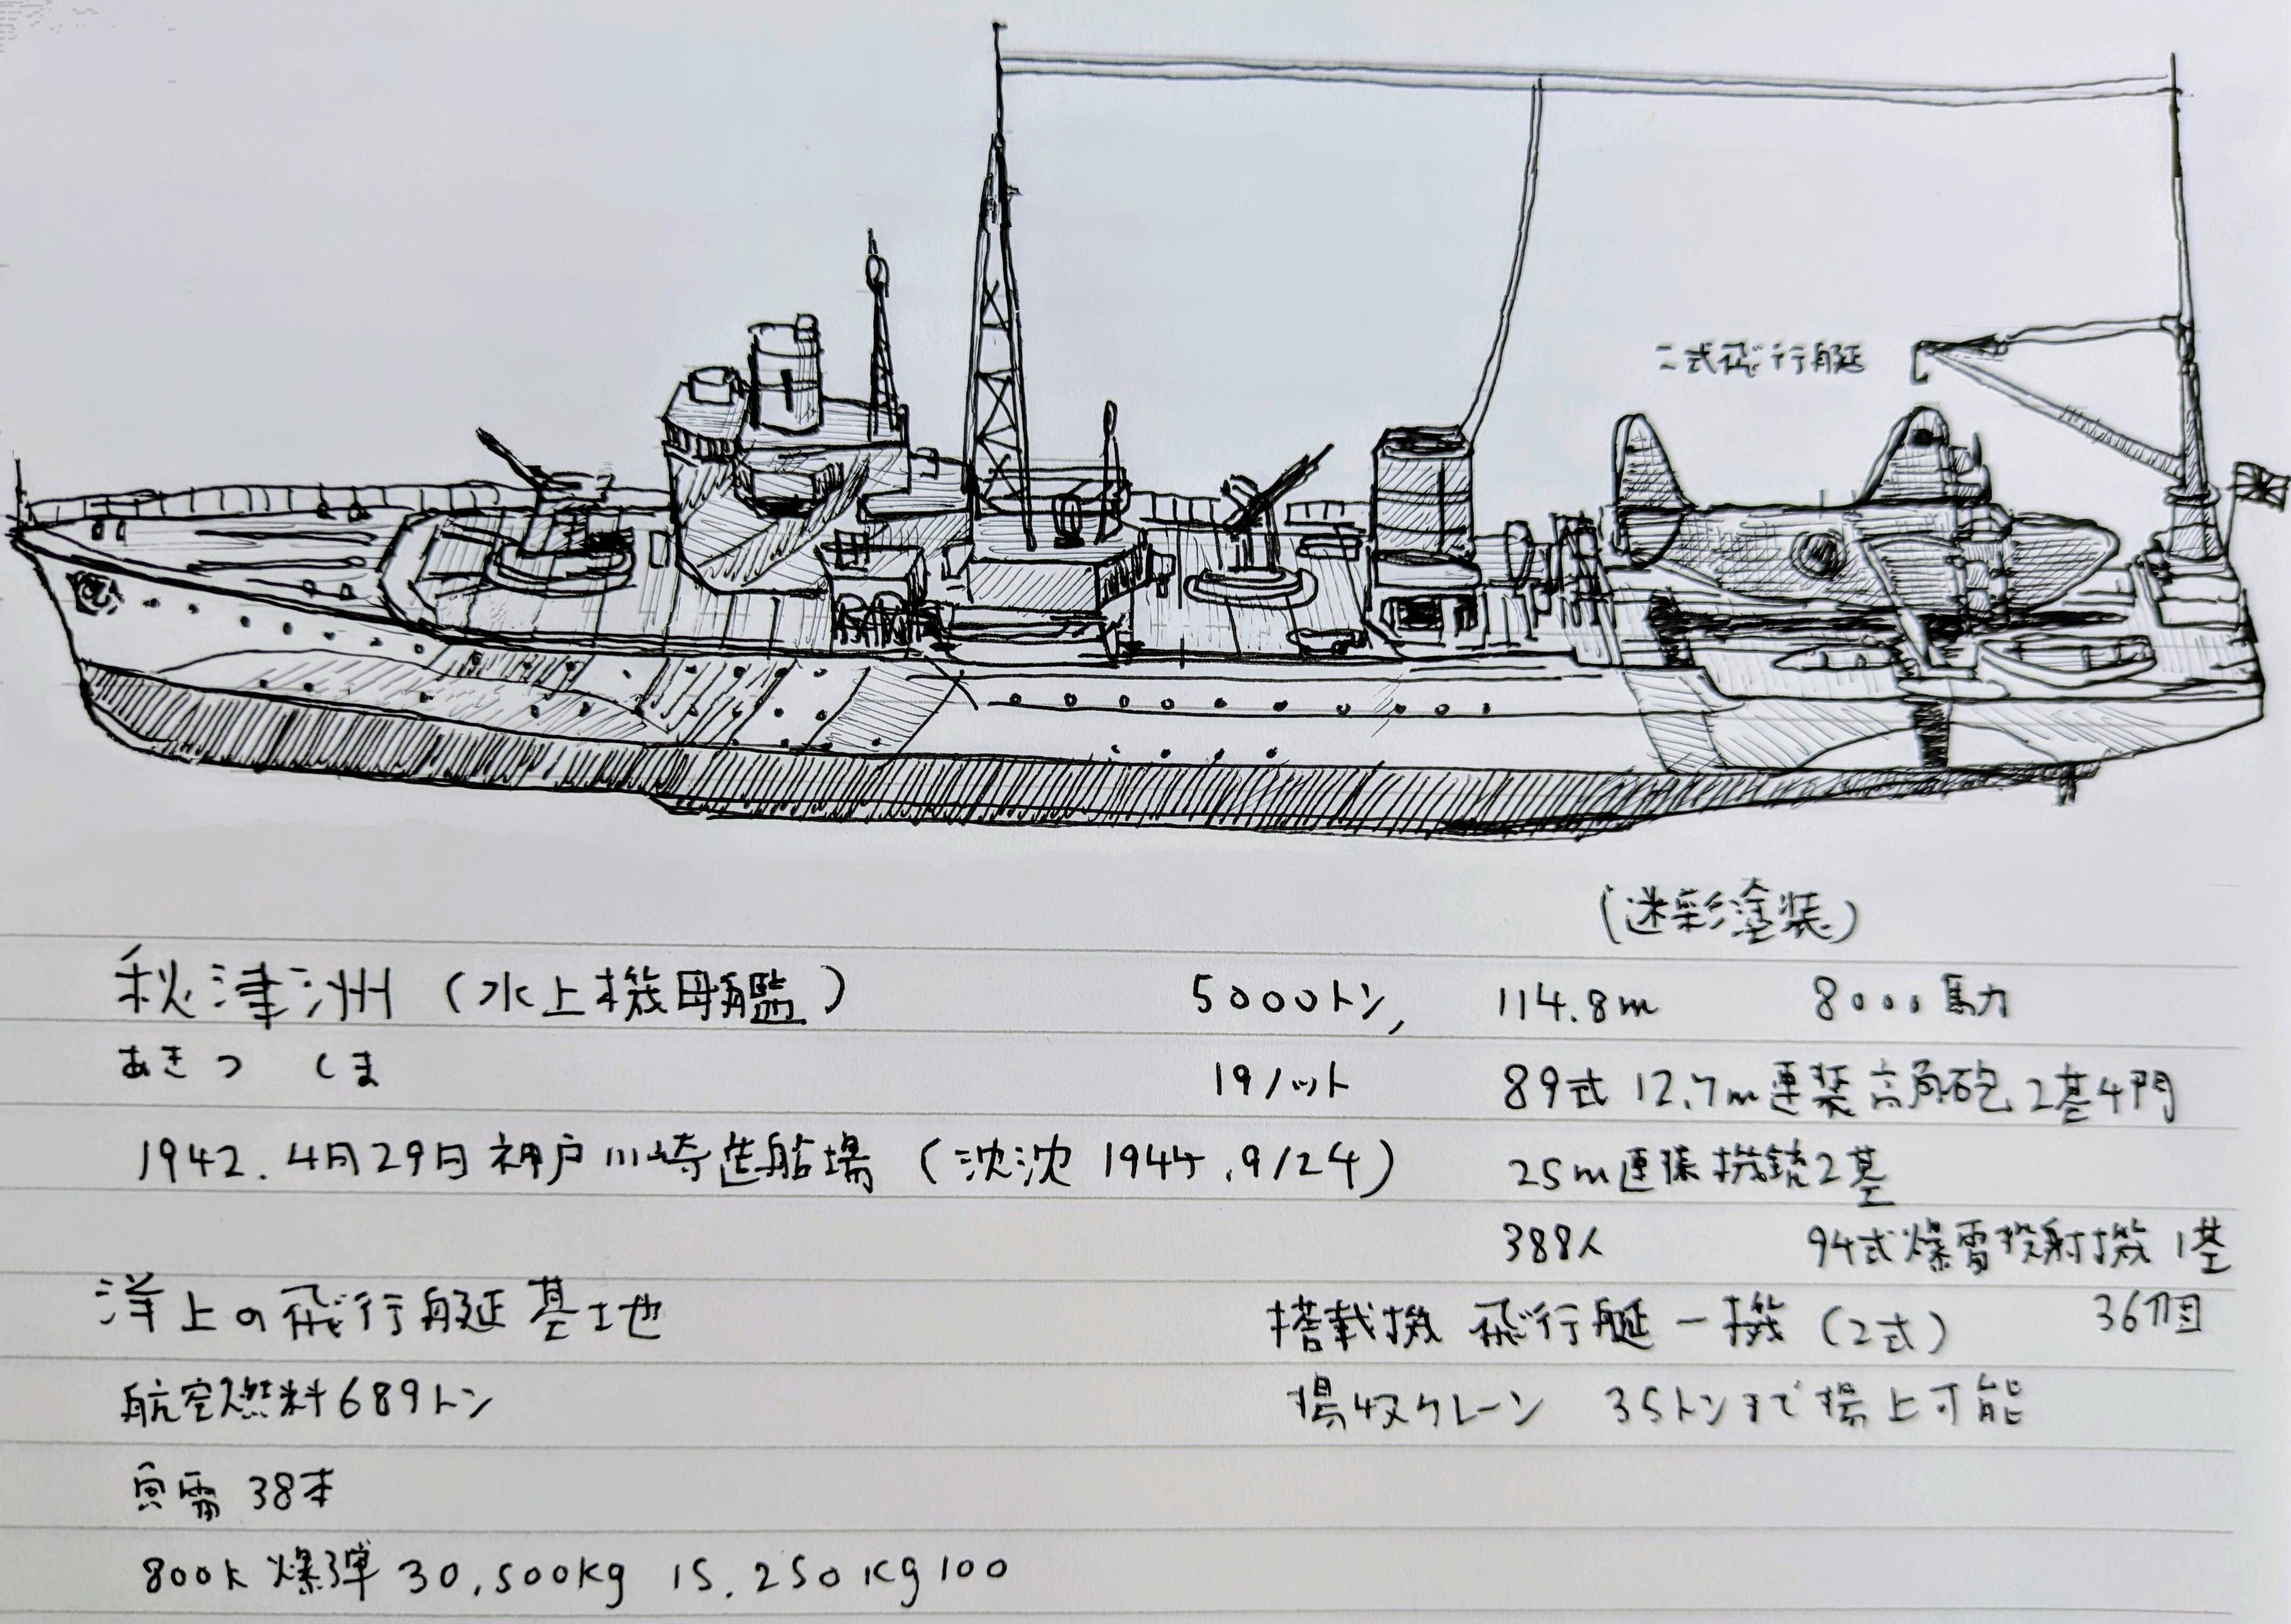 二式飛行艇
(迷彩塗装)
秋津洲 (水上機母艦) 5000トン, 114.8m 8000馬力
あきつ しま 19ノット 89式 12.7m連装高角砲 2基4門
1942. 4月29日 神戸川崎造船場 (沈沈 1944.9/24) 25m連装機銃2基
388人 94式爆雷投射機 1基
洋上の飛行艇基地 搭載機 飛行艇一機 (2式) 36個
航空燃料689トン 揚収クレーン 35トンまで揚上可能
魚雷 38本
800k 爆弾 30,500kg 15.250kg100